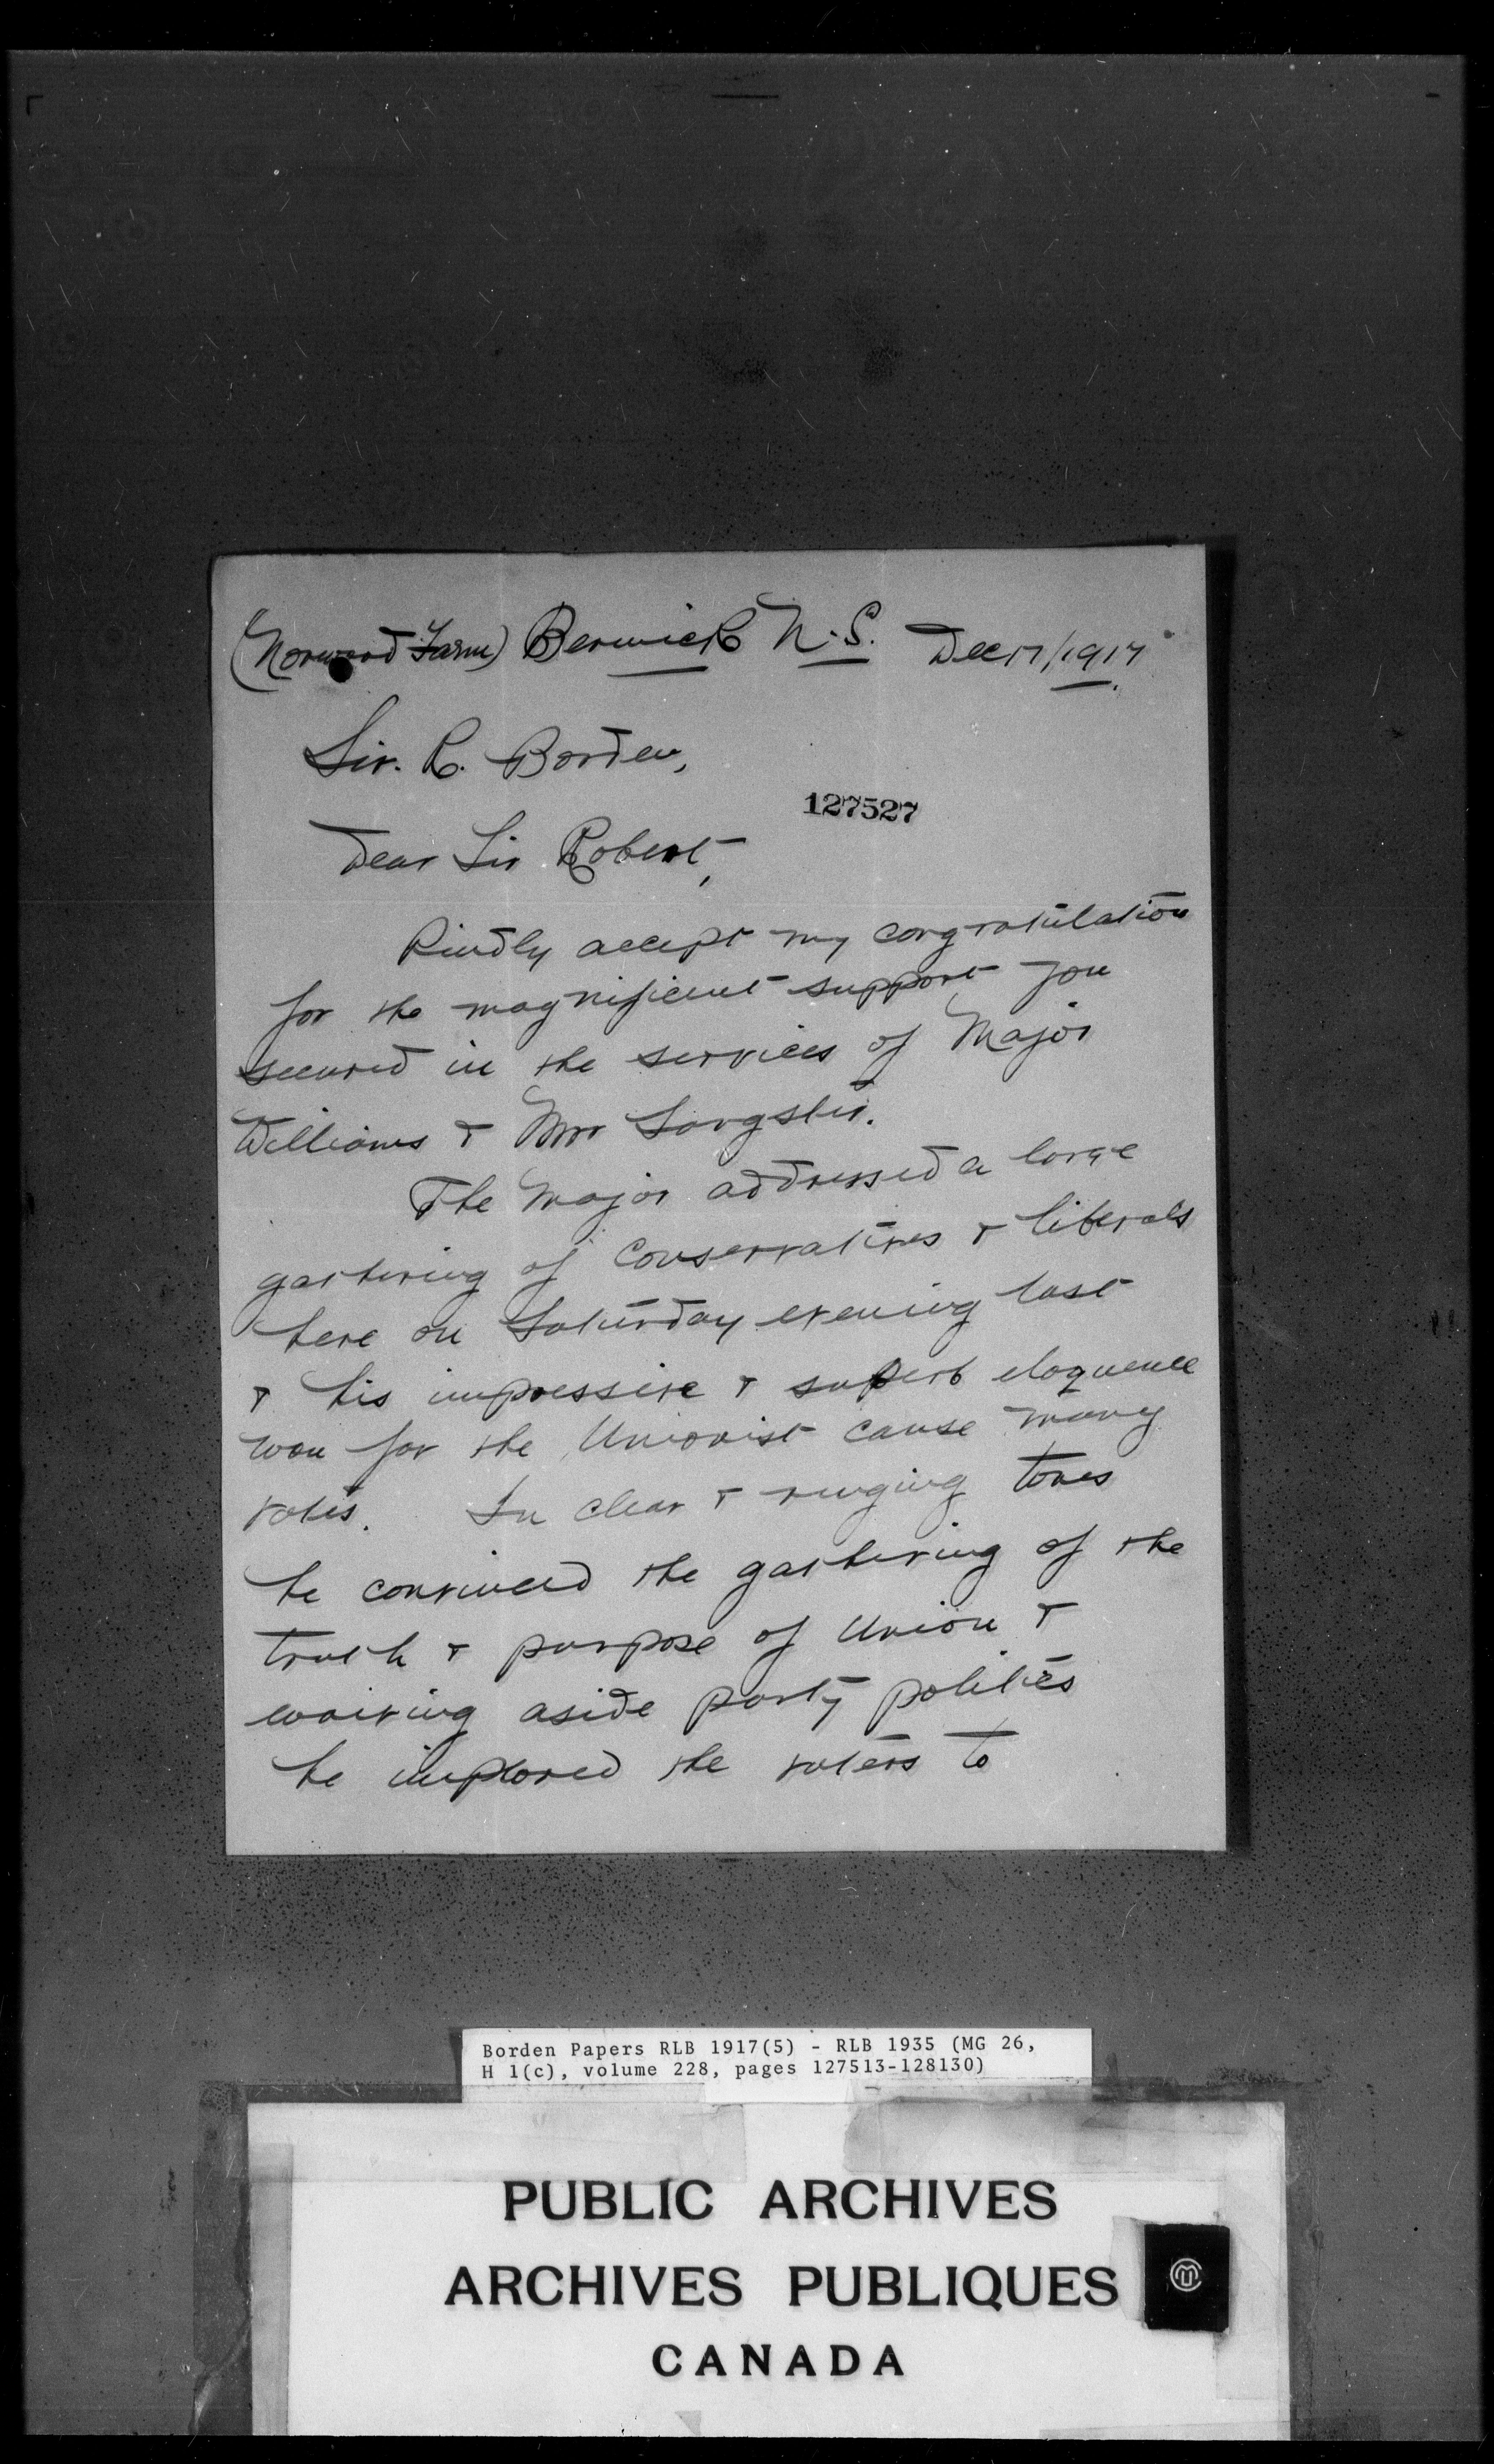 (Norwood Farm) Berwick N.S. Dec 17/1917
Sir. R. Borden,
127527
Dear Sir Robert,
Kindly accept my congratulation
for the magnificent support you
secured in the services of Major
Williams & Mr Sangster.
The Major addressed a large
gathering of Conservatives & liberals
here on Saturday evening last
& his impressive & superb eloquence
won for the Unionist cause many
votes. In clear & ringing tones
he convinced the gathering of the
truth & purpose of Union &
waiving aside party politics
he implored the voters to
Borden Papers RLB 1917(5) - RLB 1935 (MG 26,
H 1(c), volume 228, pages 127513-128130)
PUBLIC ARCHIVES
ARCHIVES PUBLIQUES
CANADA